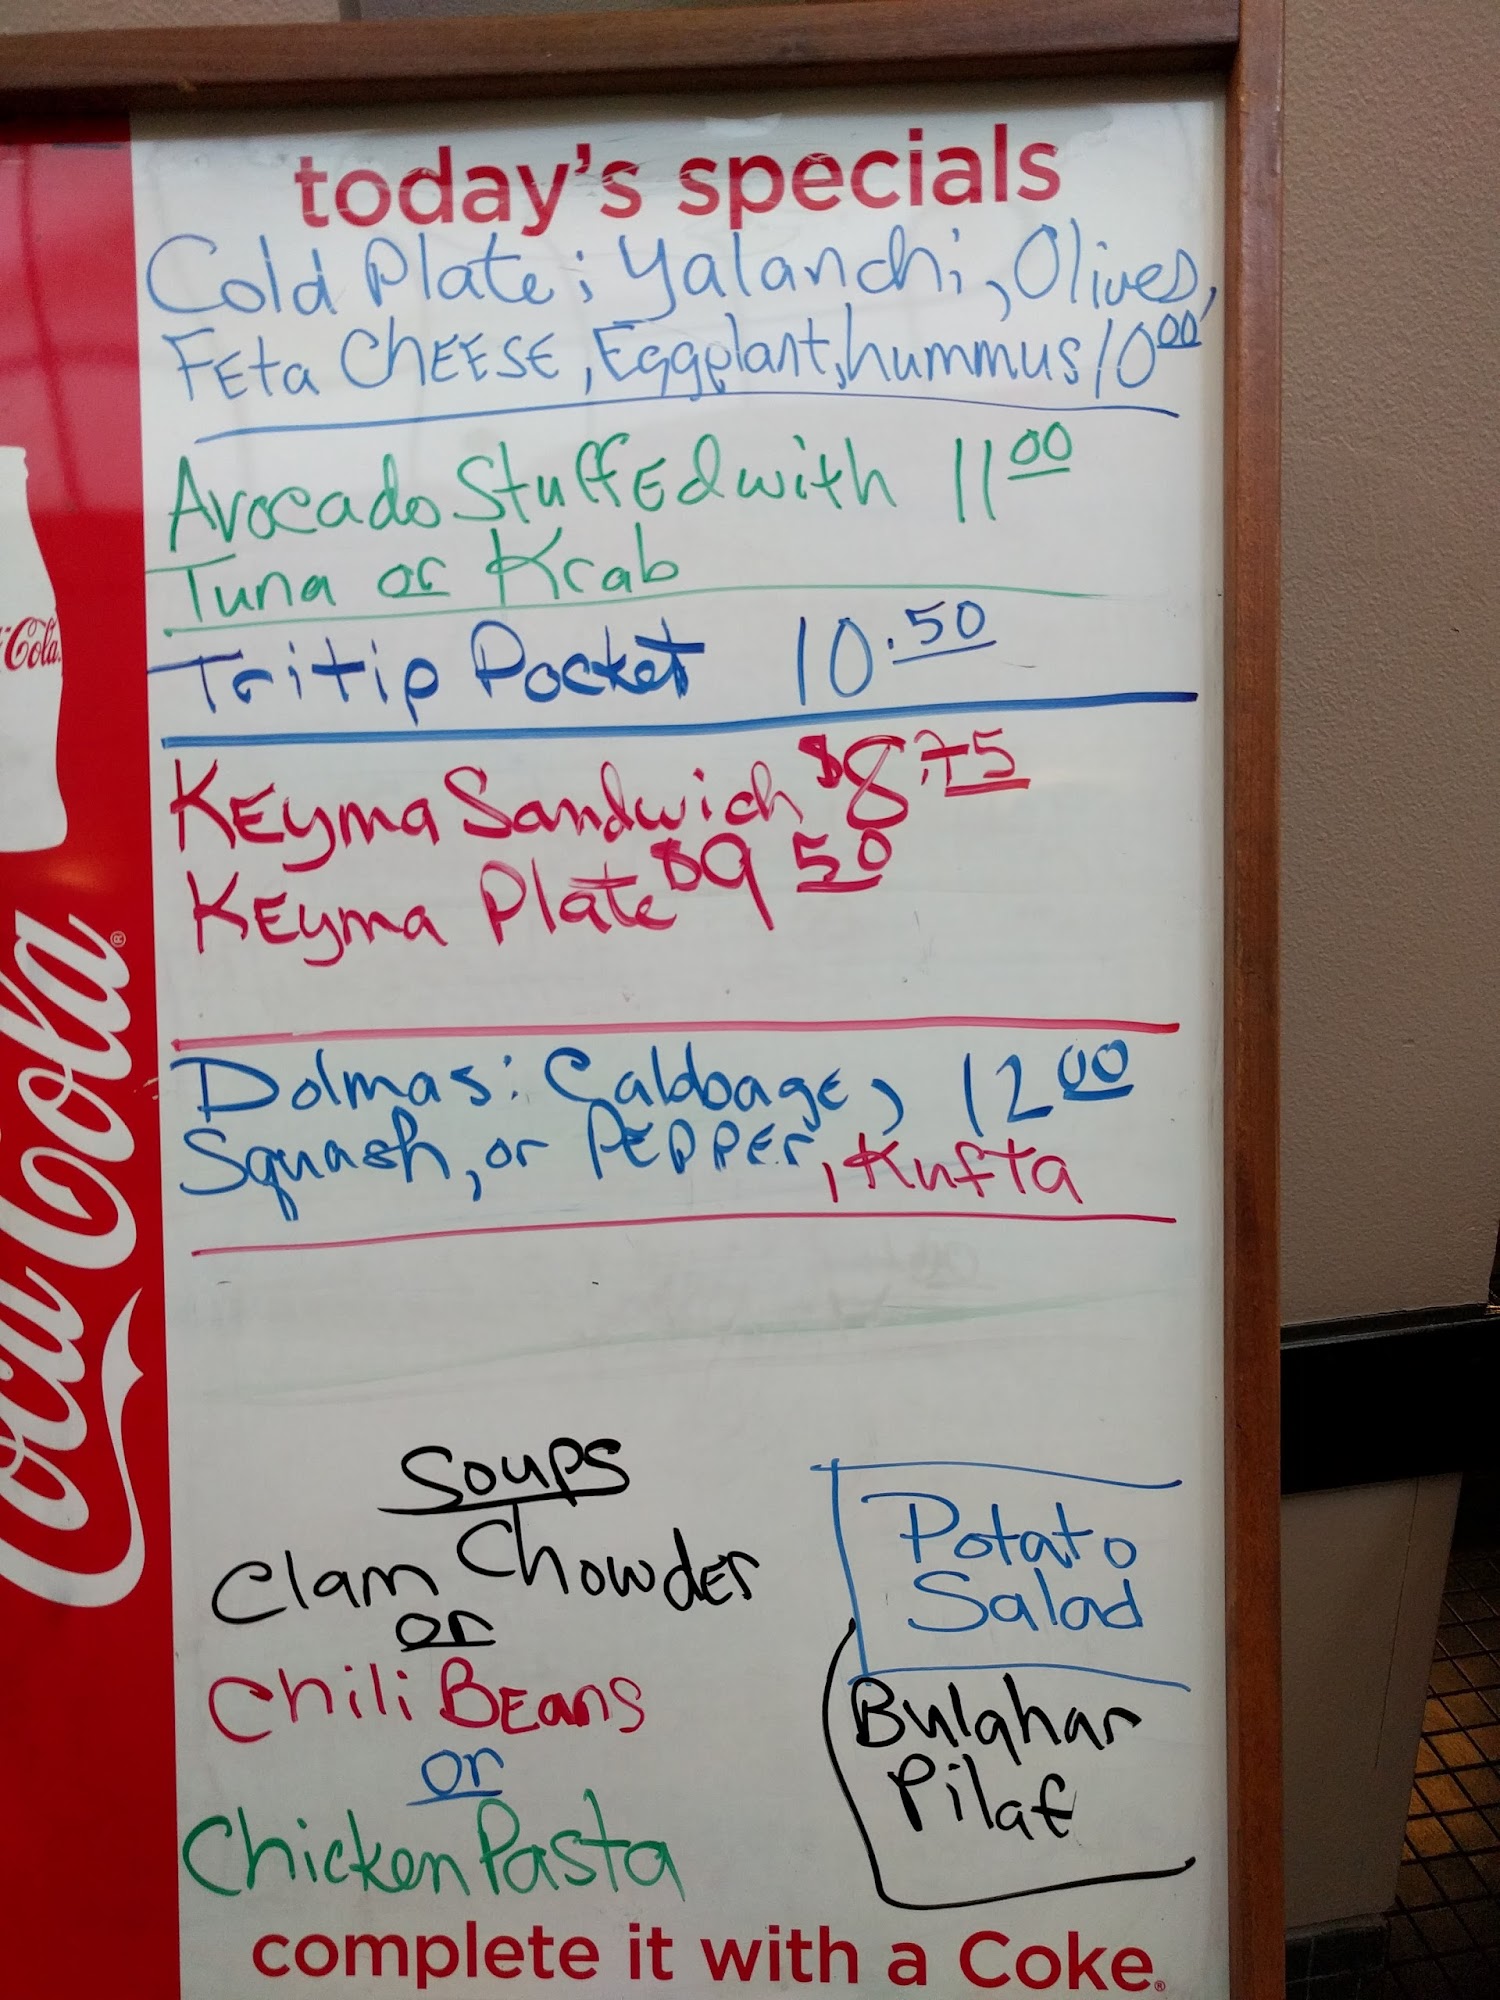 today's specials
Cold Plate; Yalanchi, Olives,
FEta CHEESE, Eggplant, hummus 10.00
Avocado StuffEd with 11 00
Tuna or Krab
Tritip Pocket 10.50
KEyma Sandwich $8.75
KEyma Plate $9 50
Dolmas: Cabbage, 12 00
Squash, or PEPPEr, Kufta
Soups
Clam ChowdEr
or
Chili BEans
or
Chicken Pasta
Potato
Salad
Bulghar
Pilaf
complete it with a Coke®
Coca Cola®
-Cola